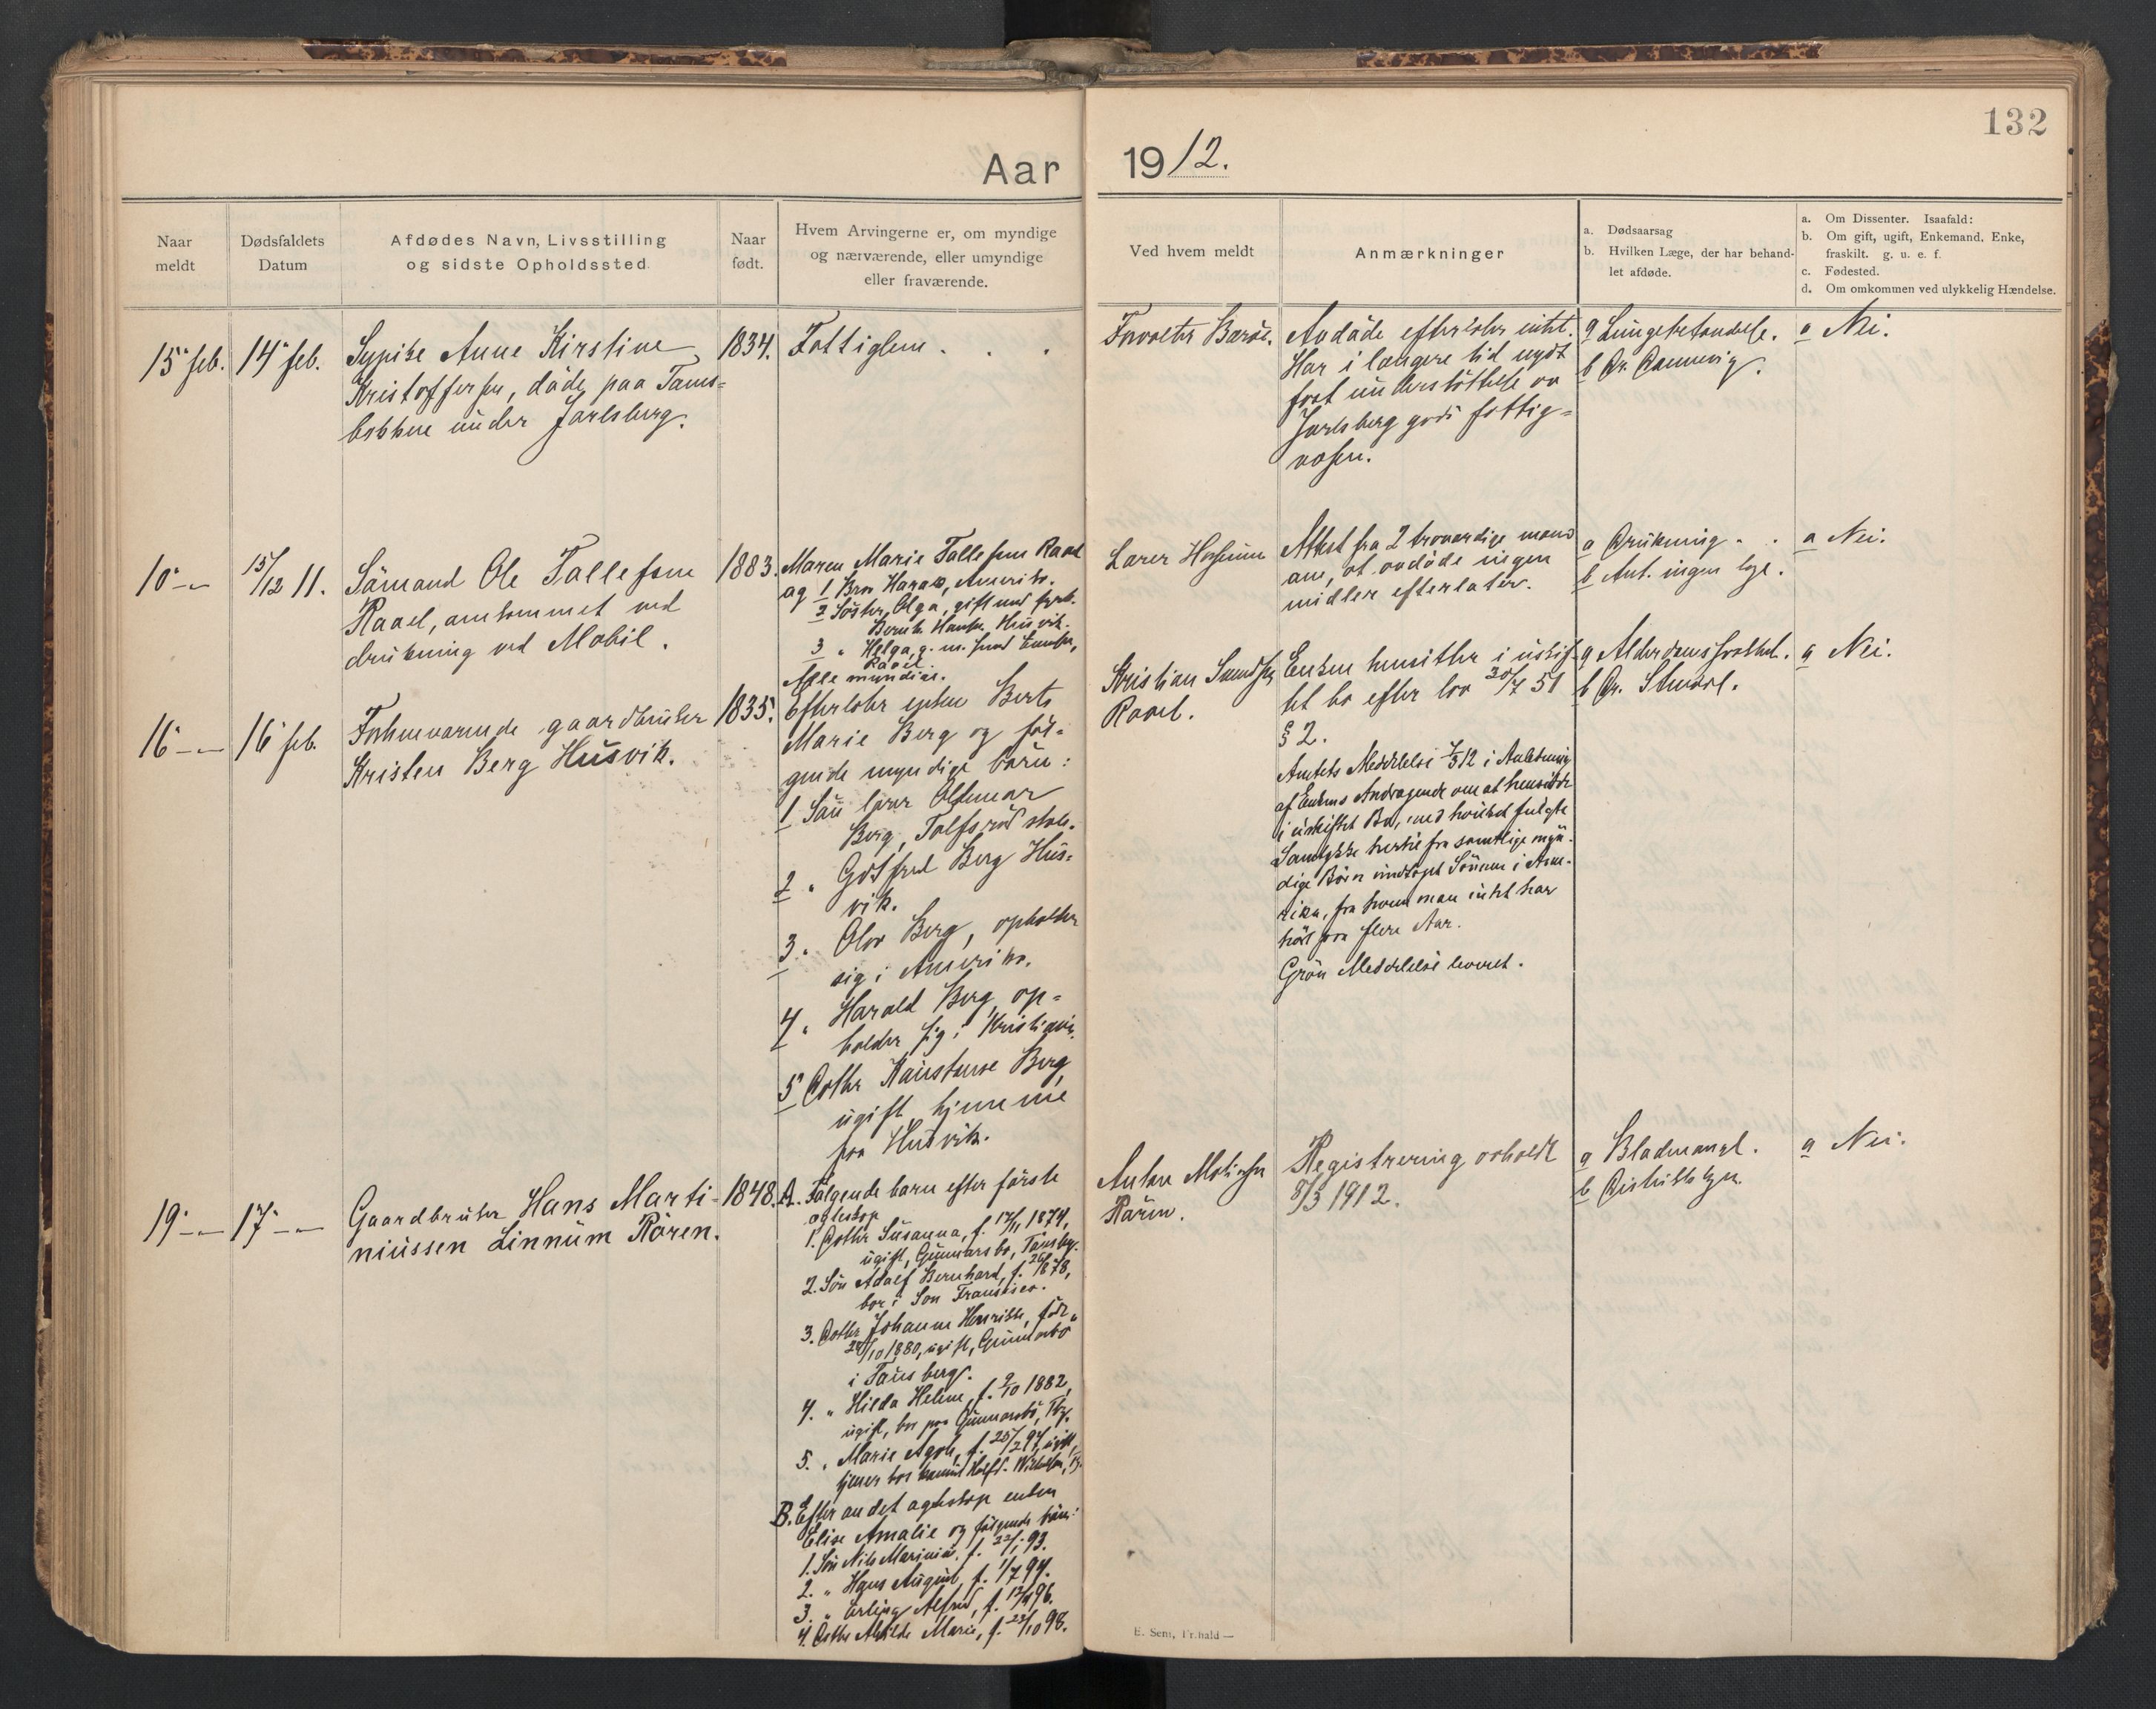 132
Aar 19 12.
Naar meldt
Dødsfaldets Datum
Afdødes Navn, Livsstilling og sidste Opholdssted.
Naar født.
Hvem Arvingerne er, om myndige og nærværende, eller umyndige eller fraværende.
Ved hvem meldt
Anmærkninger
a. Dødsaarsag
b. Hvilken Læge, der har behandlet afdøde.
a. Om Dissenter. Isaafald:
b. Om gift, ugift, Enkemand, Enke, fraskilt. g. u. e. f.
c. Fødested.
d. Om omkommen ved ulykkelig Hændelse.
15 feb.
14 feb.
Sypike Anne Kirstine
Kristoffersen, døde paa Tams=
bakken under Jarlsberg.
1834.
Fattiglem.
Forvalter Barøe.
Avdøde efterlater intet.
Har i længere tid nydt
fast understøttelse av
Jarlsberg gods fattig=
væsen.
a Lungebetændelse.
b Dr.
a Nei.
10 - "-
15/12 11.
Sømand Ole Tallefsen
Raael, omkommet ved
drukning ved Mobil.
1883.
Maren Marie Tallefsen Raael
og 1 Bror Harald, Amerika.
2 Søster Olga, gift med
Husvik.
3 " Helga, g. m.
Raael.
Alle myndige.
Lærer
Attest fra 2 troværdige mænd
om, at avdøde ingen
midler efterlater.
a Drukning.
b Ant. ingen læge.
a Nei.
16 - "-
16 feb.
Forhenværende gaardbruker
Kristen Berg Husvik.
1835.
Efterlater enken Berte
Marie Berg og føl=
gende myndige børn:
1 Søn lærer Oldemar
Berg, Tolfsrød skole.
2 " Gotfred Berg Hus=
vik.
3 " Olav Berg, opholder
sig i Amerika.
4 " Harald Berg, op=
holder sig i Kristiania.
5 Datter Konstanse Berg,
ugift, hjemme
paa Husvik.
Kristian
Raael.
Enken hensitter i uskif=
tet bo efter lov 30/7 51
§ 2.
Amtets Meddelelse 7/5 12 i Anledning
af Enkens Andragende om at hensidde
i uskiftet Bo, med hvilket fulgte
Samtykke hertil fra samtlige myn=
dige Børn undtagt Sønnen i Ame=
rika, fra hvem man intet har
hørt paa flere Aar.
Grøn Meddelelse leveret.
a Alderdomssvakhet.
b Dr.
a Nei.
19 - "-
17 - "-
Gaardbruker Hans Marti=
niussen Linnum Røren.
1848.
A. Følgende barn efter første
egteskap
1. Datter Susanna, f. 12/11 1874,
ugift, Gunnarsbo, Tønsbg.
2. Søn Adolf Bernhard, f. 26/8 78,
bor i San Fransisco.
3. Datter Johanne Henrikke, født
24/10 1880, ugift, Gunnarsbø
i Tønsberg.
4. " Hilda Helene, f. 9/10 1882,
ugift, bor paa Gunnarsbø, Tbg.
5. " Marie f. 25/2 94, ugift,
tjener hos
B. Efter andet egteskap enken
Elise Amalie og følgende børn:
1. Søn Nils Marinius, f. 22/1 93.
2. " Hans August, f. 1/7 94.
3. " Erling Alfred, f. 12/4 96.
4. Datter Alvilde Marie, f. 22/10 98.
Anton
Røren.
Registrering avholdt
8/3 1912.
a Blodmangl.
b Distriktslægen.
a Nei.
E. Sem, Fr.hald —